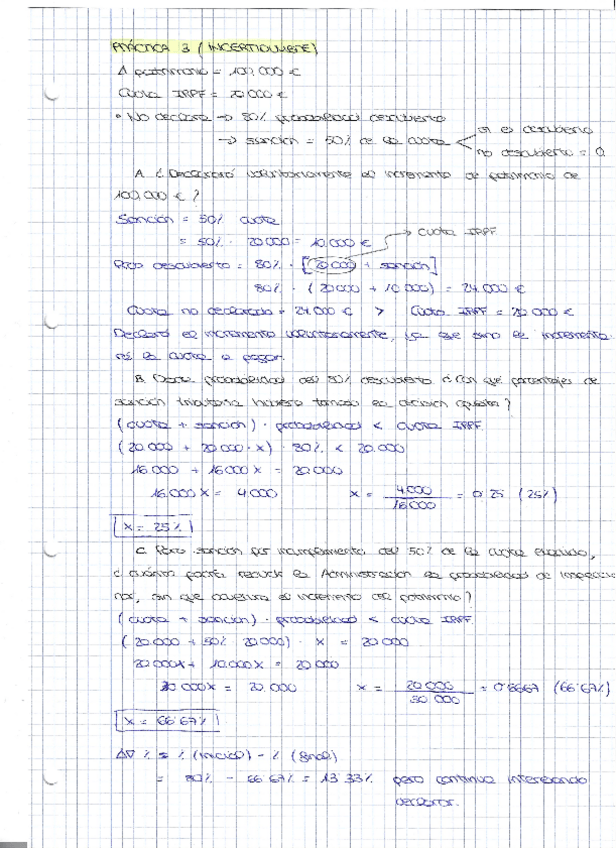 PRÁCTICA 3 (INCERTIDUMBRE)
Δ patrimonio = 100.000 €
Cuota IRPF = 20.000 €
• No declara → 80% probabilidad descubierto
→ sanción = 50% de la cuota
si es descubierto
no descubierto = 0
A. ¿Declarará voluntariamente el incremento de patrimonio de
100.000 €?
Sanción = 50% cuota
= 50% · 20.000 = 10.000 €
→ cuota IRPF
descubierto = 80% · [20.000 + sanción]
80% · (20.000 + 10.000) = 24.000 €
Cuota no declarado = 24.000 € > Cuota IRPF = 20.000 €
Declara el incremento voluntariamente, ya que sino se incrementa
rá la cuota a pagar.
B. Dada probabilidad del 80% descubierto ¿Con qué porcentajes de
sanción tributaria hubiera tomado la decisión opuesta?
(cuota + sanción) · probabilidad < cuota IRPF
(20.000 + 20.000 · x) · 80% < 20.000
16.000 + 16.000x = 20.000
16.000x = 4.000 x = 4.000 / 16.000 = 0'25 (25%)
x = 25%
C. Para sanción por incumplimiento del 50% de la cuota evadida,
¿cuánto podría reducir la Administración la probabilidad de
nar, sin que el incremento del patrimonio?
(cuota + sanción) · probabilidad < cuota IRPF
(20.000 + 50% 20.000) · x = 20.000
20.000x + 10.000x = 20.000
30.000x = 20.000 x = 20.000 / 30.000 = 0'6667 (66'67%)
x = 66'67%
Δ∇ % = % (inicial) - % (final)
= 80% - 66'67% = 13'33% pero continua interesando
declarar.